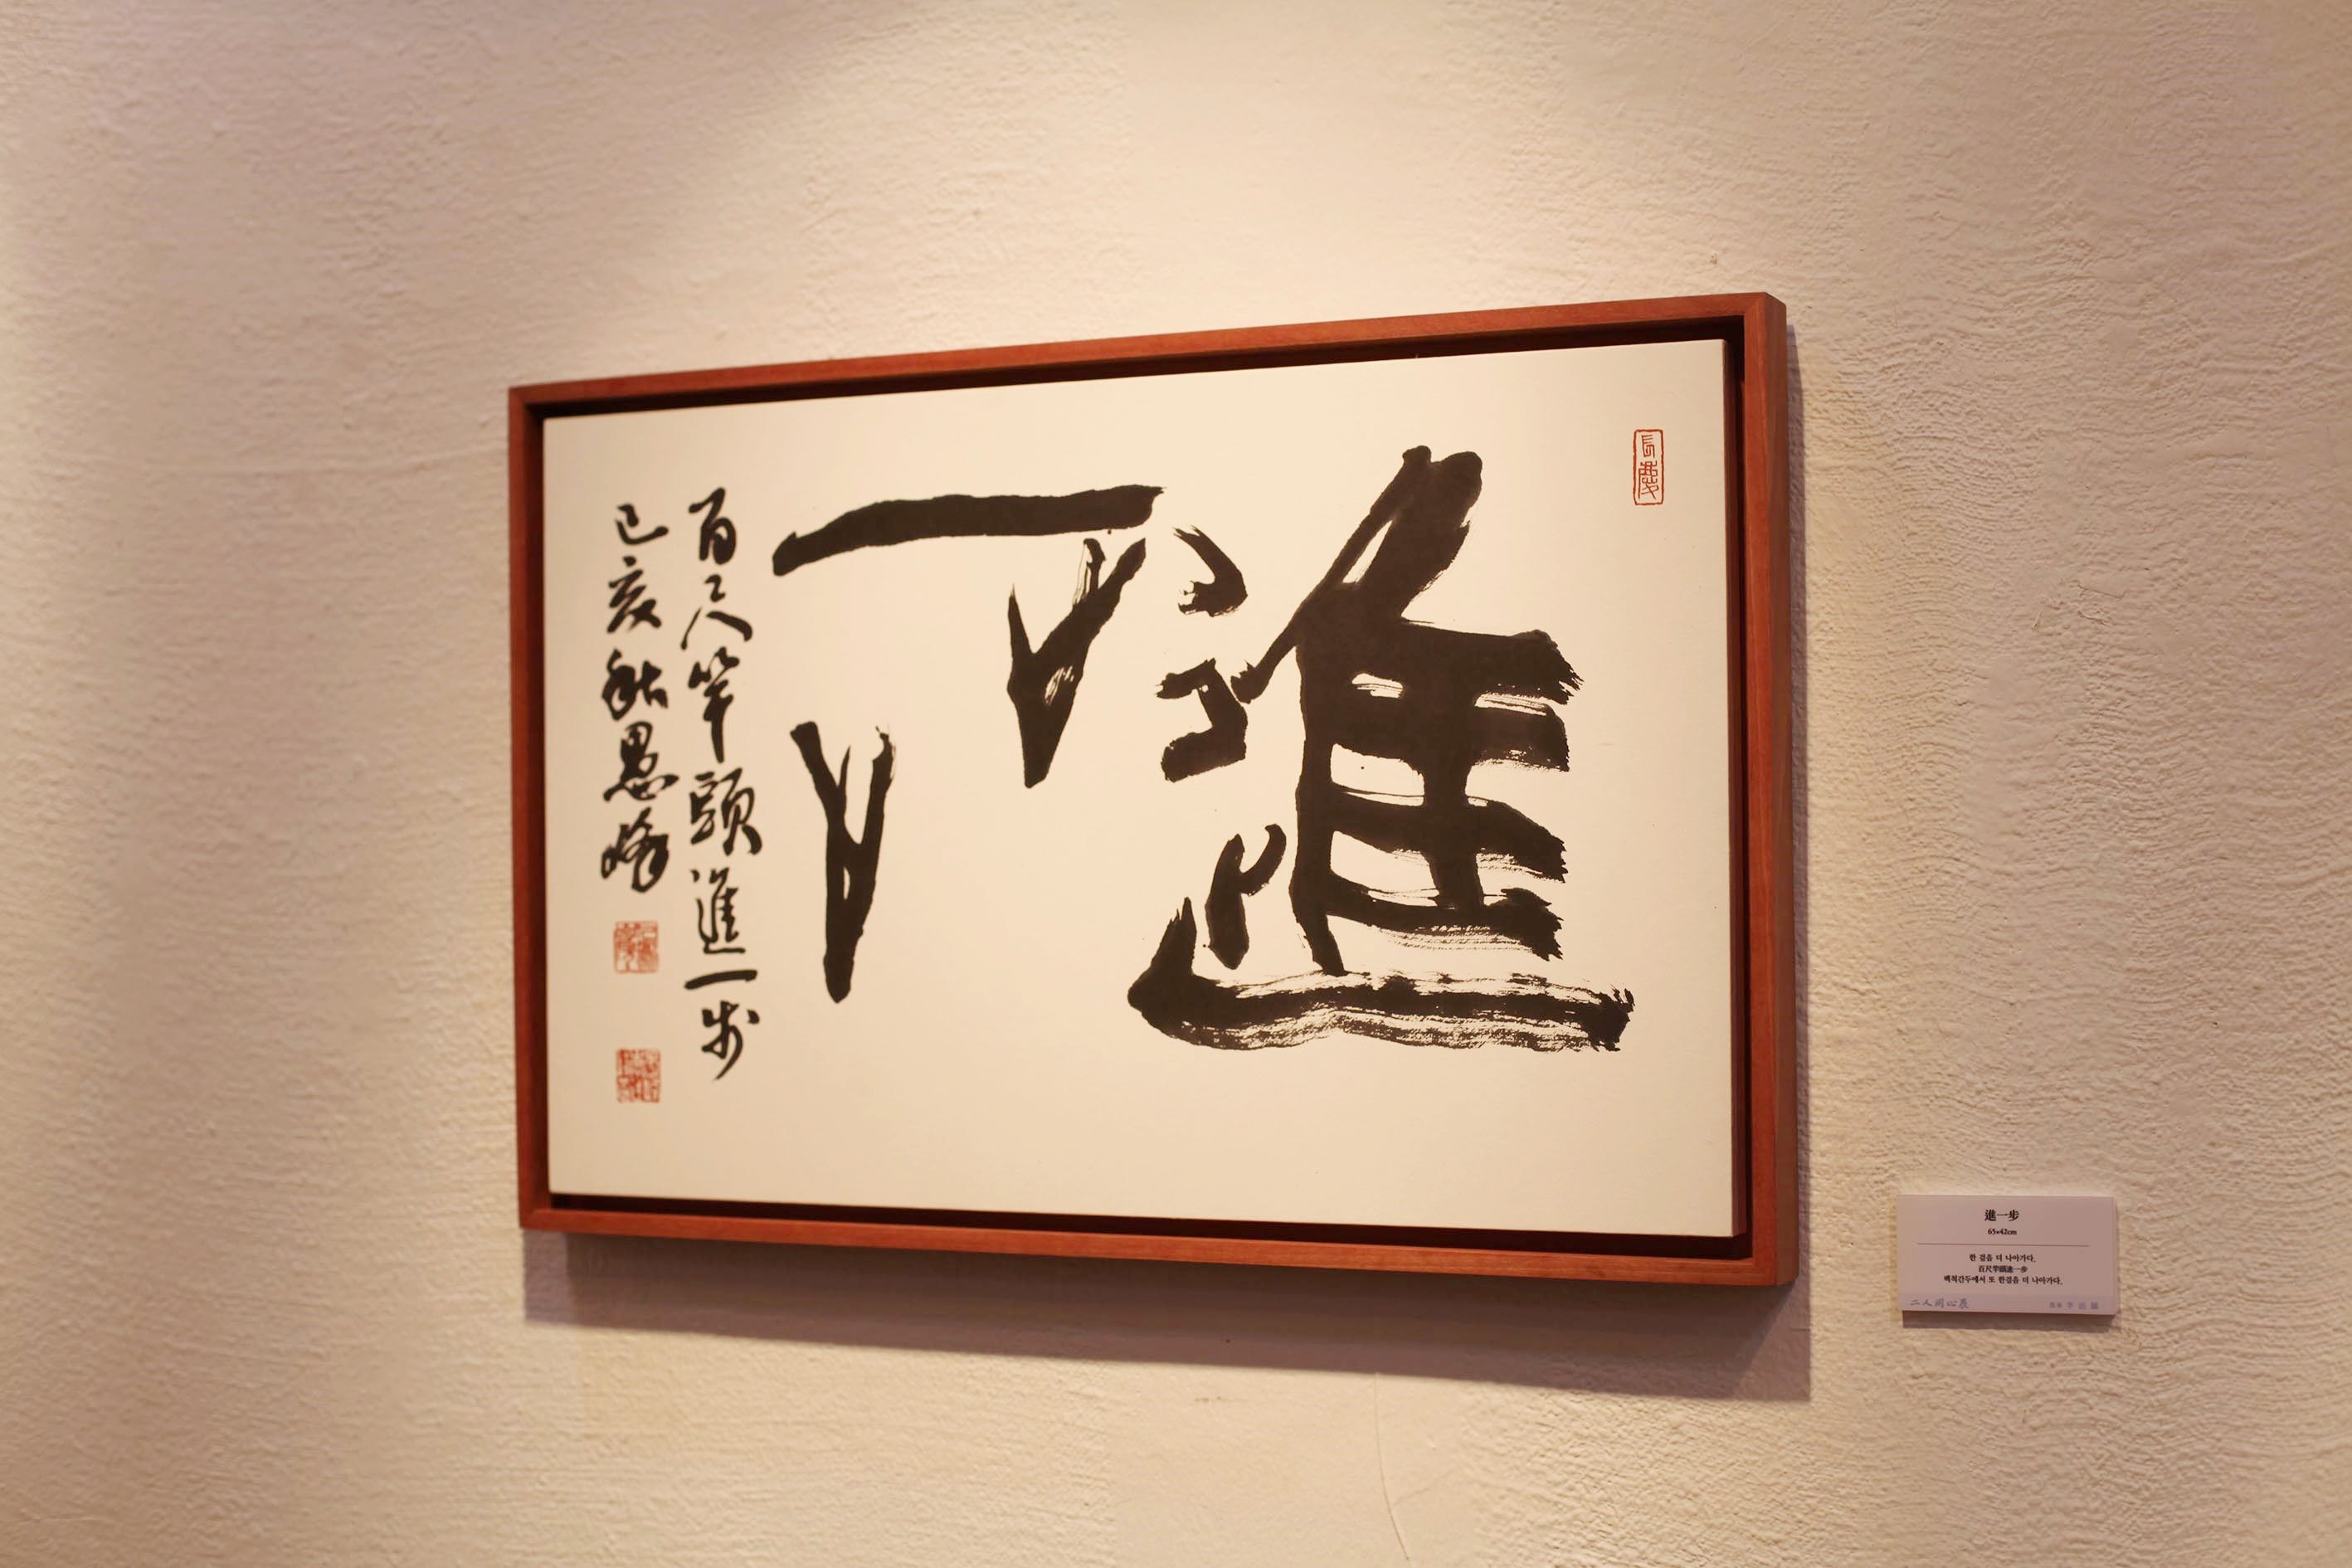 進一步
百尺竿頭進一步
己亥秋愚峰
進一步
65×42cm
한 걸음 더 나아가다.
百尺竿頭進一步
백척간두에서 또 한걸음 더 나아가다.
二人同心展